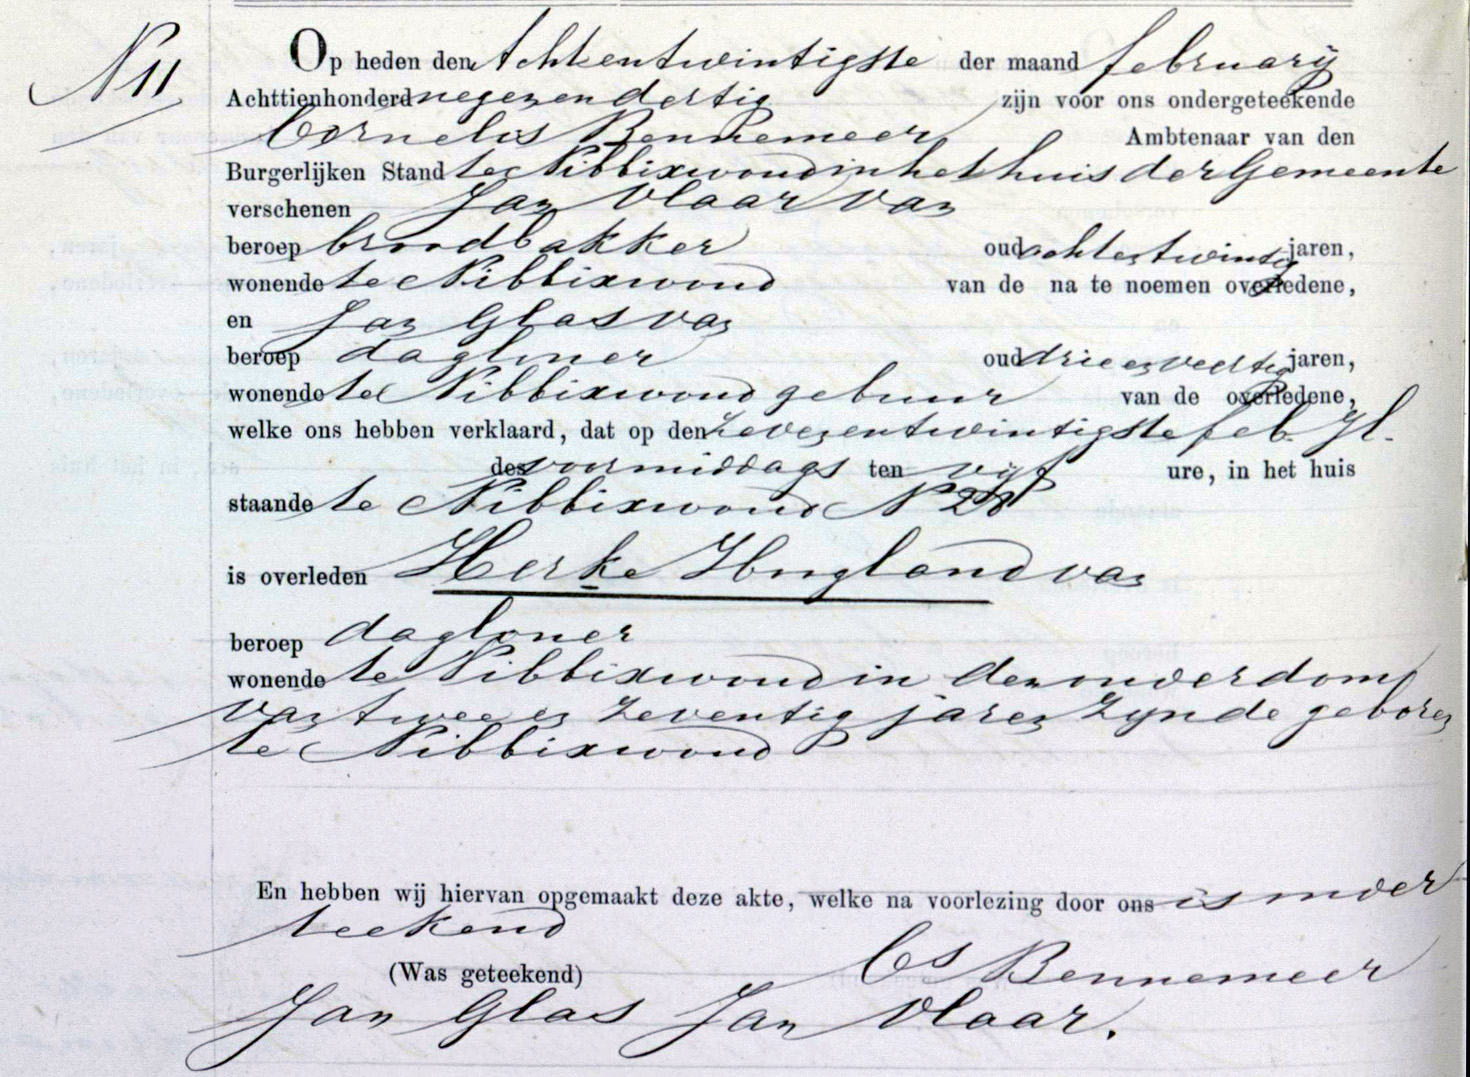 N 11
Op heden den Achtentwintigste der maand februarij
Achttienhonderd negen en dertig zijn voor ons ondergeteekende
Cornelis Bennemeer Ambtenaar van den
Burgerlijken Stand te Nibbixwoud in het huis der Gemeente
verschenen Jan Vlaar van
beroep broodbakker oud achtentwintig jaren,
wonende te Nibbixwoud van de na te noemen overledene,
en Jan Glas van
beroep dagloner oud drie en veertig jaren,
wonende te Nibbixwoud gebuur van de overledene,
welke ons hebben verklaard, dat op den zevenentwintigste feb. jl.
des voormiddags ten vijf ure, in het huis
staande te Nibbixwoud N 28
is overleden Herke Hugland van
beroep dagloner
wonende te Nibbixwoud in den ouderdom
van twee en zeventig jaren zijnde geboren
te Nibbixwoud
En hebben wij hiervan opgemaakt deze akte, welke na voorlezing door ons is onder
teekend
(Was geteekend) Cs Bennemeer
Jan Glas Jan Vlaar.